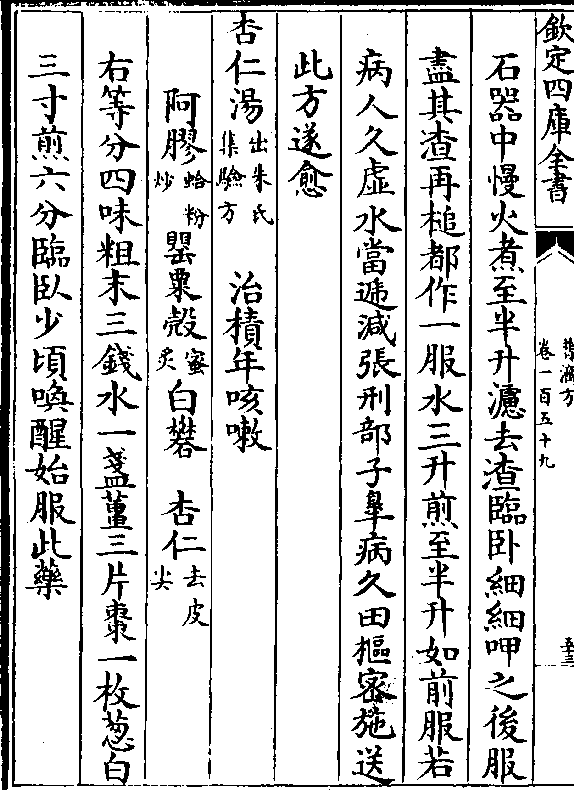 欽定四庫全書
普濟方
卷一百五十九
五三
石器中慢火煮至半升濾去渣臨卧細細呷之後服
盡其渣再槌都作一服水三升煎至半升如前服若
病人久虛水當遞減張刑部子臯病久田樞密施送
此方遂愈
杏仁湯出朱氏集驗方 治積年咳嗽
阿膠蛤粉炒 罌粟殼蜜炙 白礬 杏仁去皮尖
右等分四味粗末三錢水一盞薑三片棗一枚葱白
三寸煎六分臨臥少頃喚醒始服此藥